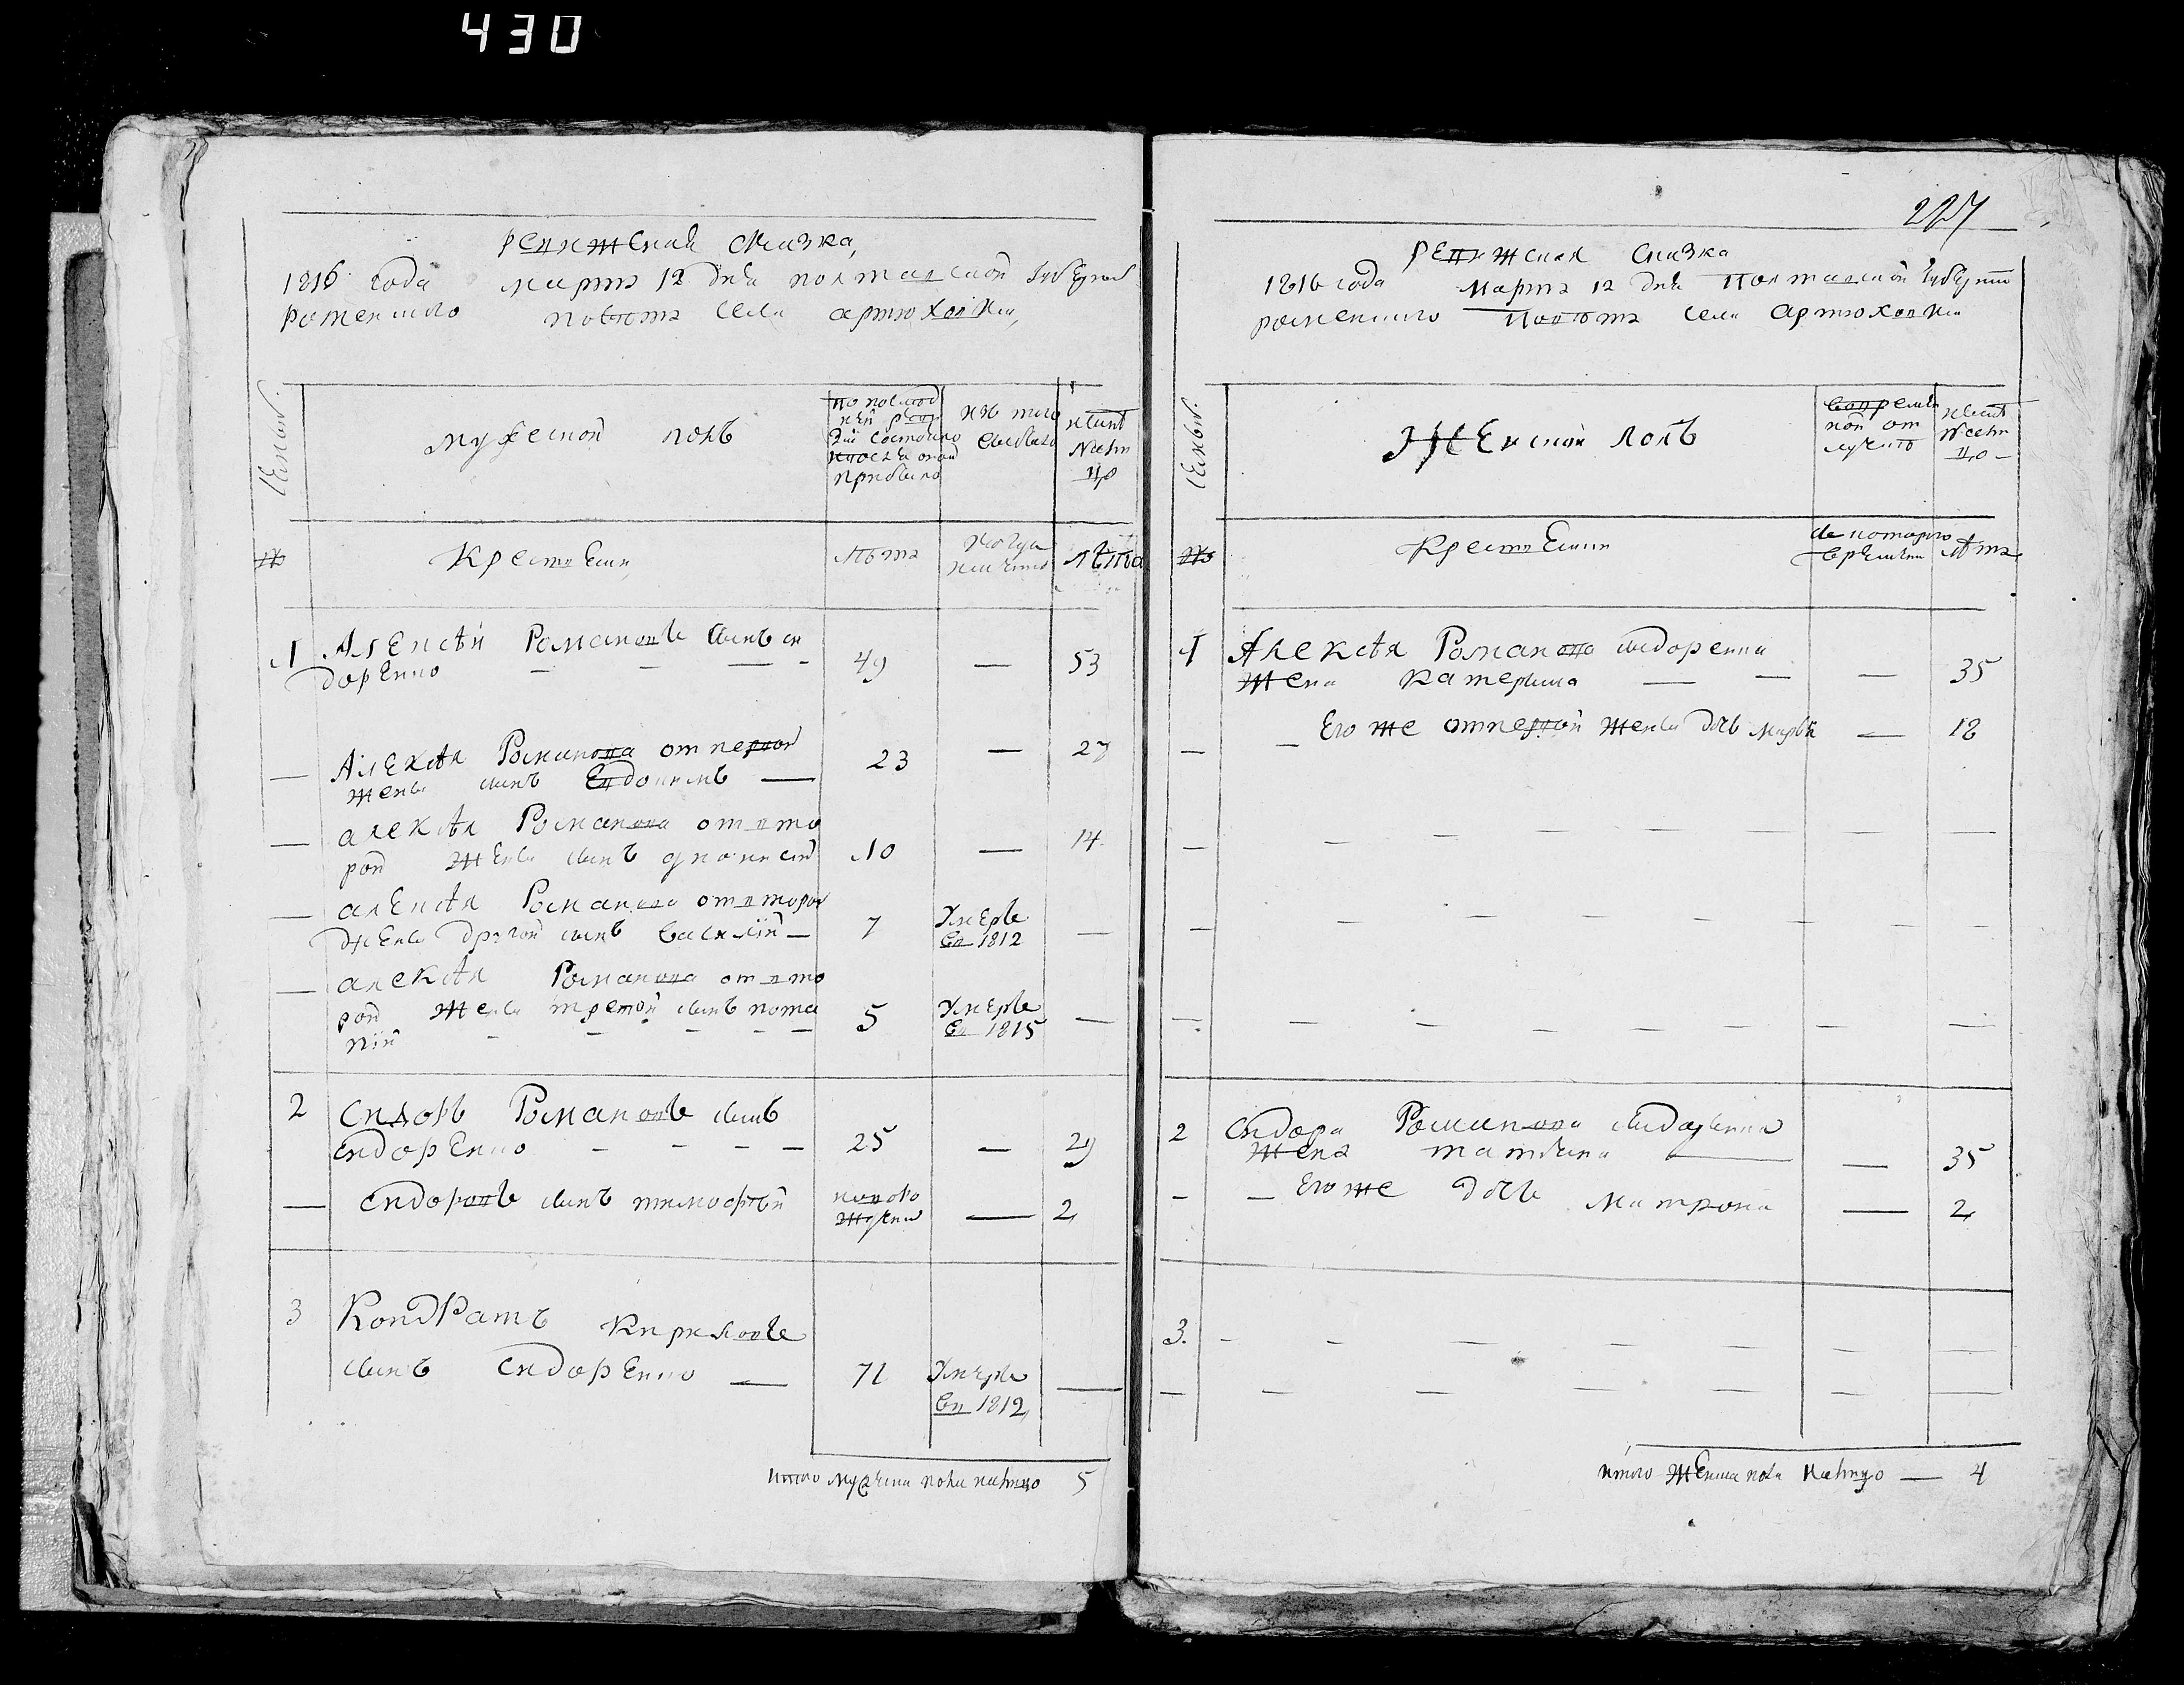 430
Ревижская сказка,
1816 года марта 12 дня полтавской губернии
роменского повѣта села артюховки,
семьи
мужеской полъ
по последней ревизіи состояло и после оной прибыло
изъ того выбыло
нынѣ налицо
№
Крестьяне
лѣта
когда именно
лѣта
1 Алексѣй Романовъ сынъ си
доренко — — — 49 — 53
— Алексѣя Романова от первой
жены сынъ Евдокимъ — 23 — 27
— алексѣя Романова от вто
рой жены сынъ 10 — 14
— алексѣя Романова от второй
жены другой сынъ василій — 7 Умерь
въ 1812 —
— алексѣя Романова от вто
рой жены третой сынъ пота
пій — — — — — 5 Умерь
въ 1815 —
2 Сидоръ Романовъ сынъ
сидоренко — — — 25 — 29
— сидоровъ сынъ тимофѣй новоро
жденъ — 2
3 Кондратъ Кириловъ
сынъ сидоренко — 71 Умерь
въ 1812 —
итого мужеска пола налицо 5
227
Ревижская сказка
1816 года марта 12 дня Полтавской губернии
роменского Повѣта села Артюховки
семьи
Женской полъ
во временной отлучкѣ
нынѣ налицо
№
Крестьяне
с которого времени
лѣта
1 Алексѣя Романова сидоренка
жена катерина — — — 35
— — Его же от первой жены дочь — 18
— — — — — — —
— — — — — — —
— — — — — — —
2 Сидора Романова сидоренка
жена татіана — — 35
— — Его же дочь матрона — 2
3. — — — — — — —
— — — — — — —
итого женска пола налицо — 4